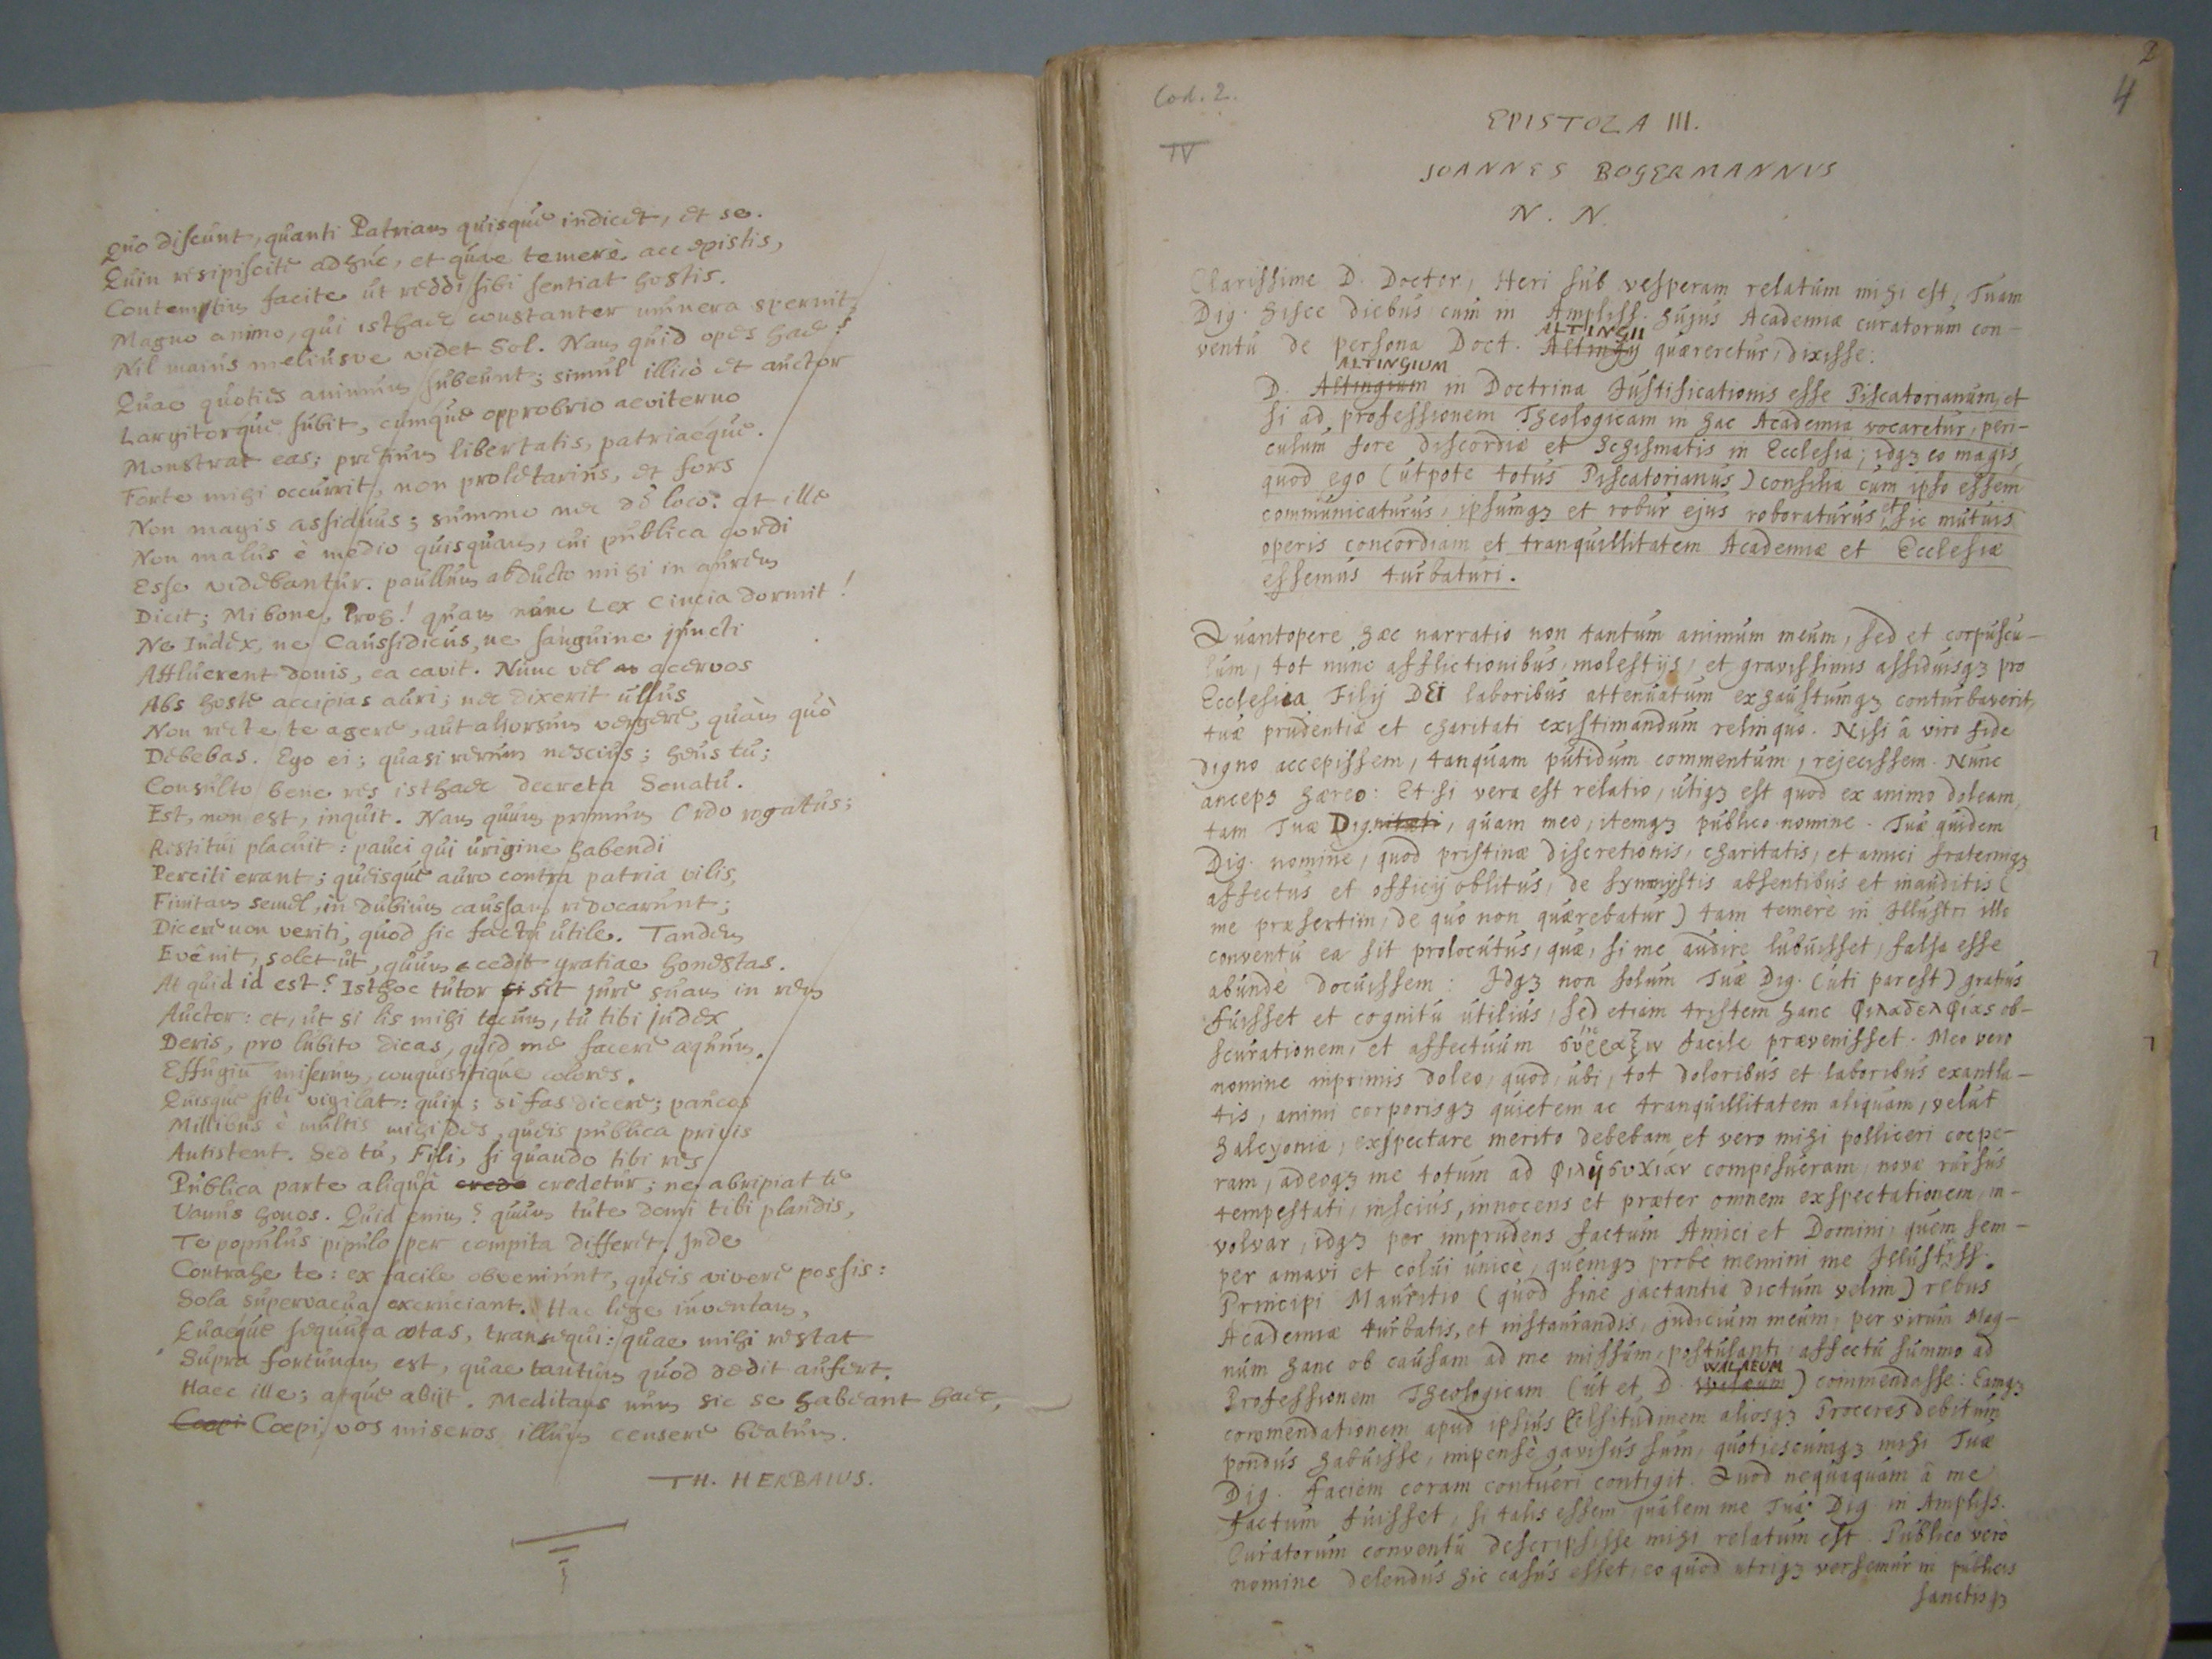 Quo discunt, quanti Patriam quisque indicet, et se.
Quin resipiscite adhuc, et quae temerè accepistis,
Contemptim facite ut reddi sibi sentiat hostis.
Magno animo, qui isthaec constanter munera spernit,
Nil maius meliusve videt Sol. Nam quid opes hae?
Quae quoties animum subeunt; simul illicò et auctor
Largitorque subit, cumque opprobrio aeviterno
Monstrat eas; pretium libertatis, patriaeque.
Forte mihi occurrit, non proletarius, et fors
Non magis assiduus; summo nec de loco: at ille
Non malus è medio quisquam, cui publica cordi
Esse videbantur. paullum abducto mihi in aurem
Dicit; Mi bone, Proh! quam nunc Lex Cincia dormit!
Ne Iudex, ne Caussidicus, ne sanguine juncti
Affluerent donis, ea cavit. Nunc vel acervos
Abs hoste accipias auri; nec dixerit ullus
Non recte te agere, aut aliorsum vergere, quàm quò
Debebas. Ego ei; quasi rerum nescius; heus tu;
Consulto bene res isthaec decreta Senatu.
Est, non est, inquit. Nam quum primum Ordo rogatus;
Restitui placuit: pauci qui urigine habendi
Perciti erant; queisque auro contra patria vilis,
Finitam semel, in dubium caussam revocarunt;
Dicere non veriti, quod sic factu utile. Tandem
Evênit, solet ut, quum cedit gratiae honestas.
At quid id est? Isthoc tutor si sit jure suam in rem
Auctor: et, ut si lis mihi tecum, tu tibi judex
Deris, pro lubito dicas, quid me facere aequum.
Effugiũ miserum, conquisitique colores.
Quisque sibi vigilat: quin; si fas dicere; paucos
Millibus è multis mihi des, queis publica privis
Antistent. Sed tu, Fili, si quando tibi res
Publica parte aliquâ crede credetur; ne abripiat te
Vanus honos. Quid enim? quum tute domi tibi plaudis,
Te populus pipulo per compita differet. Inde
Contrahe te: ex facile obvenirunt, queis vivere possis:
Sola supervacua excruciant. Hac lege iuventam,
Quaeque sequuta aetas, transequi: quae mihi restat
Supra fortunam est, quae tantum quod dedit aufert.
Haec ille; atque abijt. Meditans num sic se habeant haec,
Coepi Coepi vos miseros illum censere beatum.
TH. HERBAIUS.
Cod. 2.
2
4
IV
EPISTOLA III.
JOANNES BOGERMANNUS
N. N.
Clarissime D. Doctor, Heri sub vesperam relatum mihi est, Tuam
Dig. hisce diebus cum in Ampliss. hujus Academiæ curatorum con-
ventu de persona Doct. Altingij ALTINGII quæreretur, dixisse:
D. Altingium ALTINGIUM in Doctrina Justificationis esse Piscatorianum, et
si ad professionem Theologicam in hac Academia vocaretur, peri-
culum fore discordiæ et Schismatis in Ecclesia; idqȝ eo magis,
quod ego (utpote totus Piscatorianus) consilia cum ipso essem
communicaturus, ipsumqȝ et robur ejus roboraturus, et sic mutuis
operis concordiam et tranquillitatem Academiæ et Ecclesiæ
essemus turbaturi.
Quantopere hæc narratio non tantum animum meum, sed et corpuscu-
lum, tot nunc afflictionibus, molestijs, et gravissimis assiduisqȝ pro
Ecclesiea Filij DEI laboribus attenuatum exhaustumqȝ conturbaverit,
tuæ prudentiæ et charitati existimandum relinquo. Nisi â viro fide
digno accepissem, tanquam putidum commentum, rejecissem. Nunc
ancepȝ hæreo: Et si vera est relatio, utiqȝ est quod ex animo doleam,
tam Tuæ Dignitati, quam meo, itemqȝ publico nomine. Tuæ quidem
Dig. nomine, quod pristinæ discretionis, charitatis, et amici fraterniqȝ
affectus et officij oblitus, de symmystis absentibus et inauditis (
me præsertim, de quo non quærebatur) tam temerè in Illustri illo
conventu ea sit prolocutus, quæ, si me audire lubuisset, falsa esse
abundè docuissem: Idqȝ non solum Tuæ Dig. (uti par est) gratius
fuisset et cognitu utilius, sed etiam tristem hanc φιλαδελφίας ob-
scurationem, et affectuum facile prævenisset. Meo vero
nomine inprimis doleo, quod, ubi, tot doloribus et laboribus exantla-
tis, animi corporisqȝ quietem ac tranquillitatem aliquam, velut
halcyonia, exspectare merito debebam et vero mihi polliceri coepe-
ram, adeoqȝ me totum ad φιληsυχίαν composueram, novæ rursus
tempestati, inscius, innocens et præter omnem exspectationem, in-
volvar, idqȝ per imprudens factum Amici et Domini, quem sem-
per amavi et colui unicè, quemqȝ probè memini me Illustriss.
Principi Mauritio (quod sine jactantia dictum velim) rebus
Academiæ turbatis, et instaurandis, judicium meum, per virum Mag-
num hanc ob causam ad me missum, postulanti, affectu summo ad
Professionem Theologicam (ut et D. Walæum WALAEUM) commendasse: Eamqȝ
commendationem apud ipsius Celsitudinem aliosqȝ Proceres debitum
pondus habuisse, inpensè gavisus sum, quotiescunqȝ mihi Tuæ
Dig. faciem coram contueri contigit. Quod nequaquam â me
factum fuisset, si talis essem qualem me Tua Dig. in Ampliss.
Curatorum conventu descripsisse mihi relatum est. Publico verò
nomine delendus hic casus esset, eo quod utriqȝ versemur in publicis
sanctisqȝ